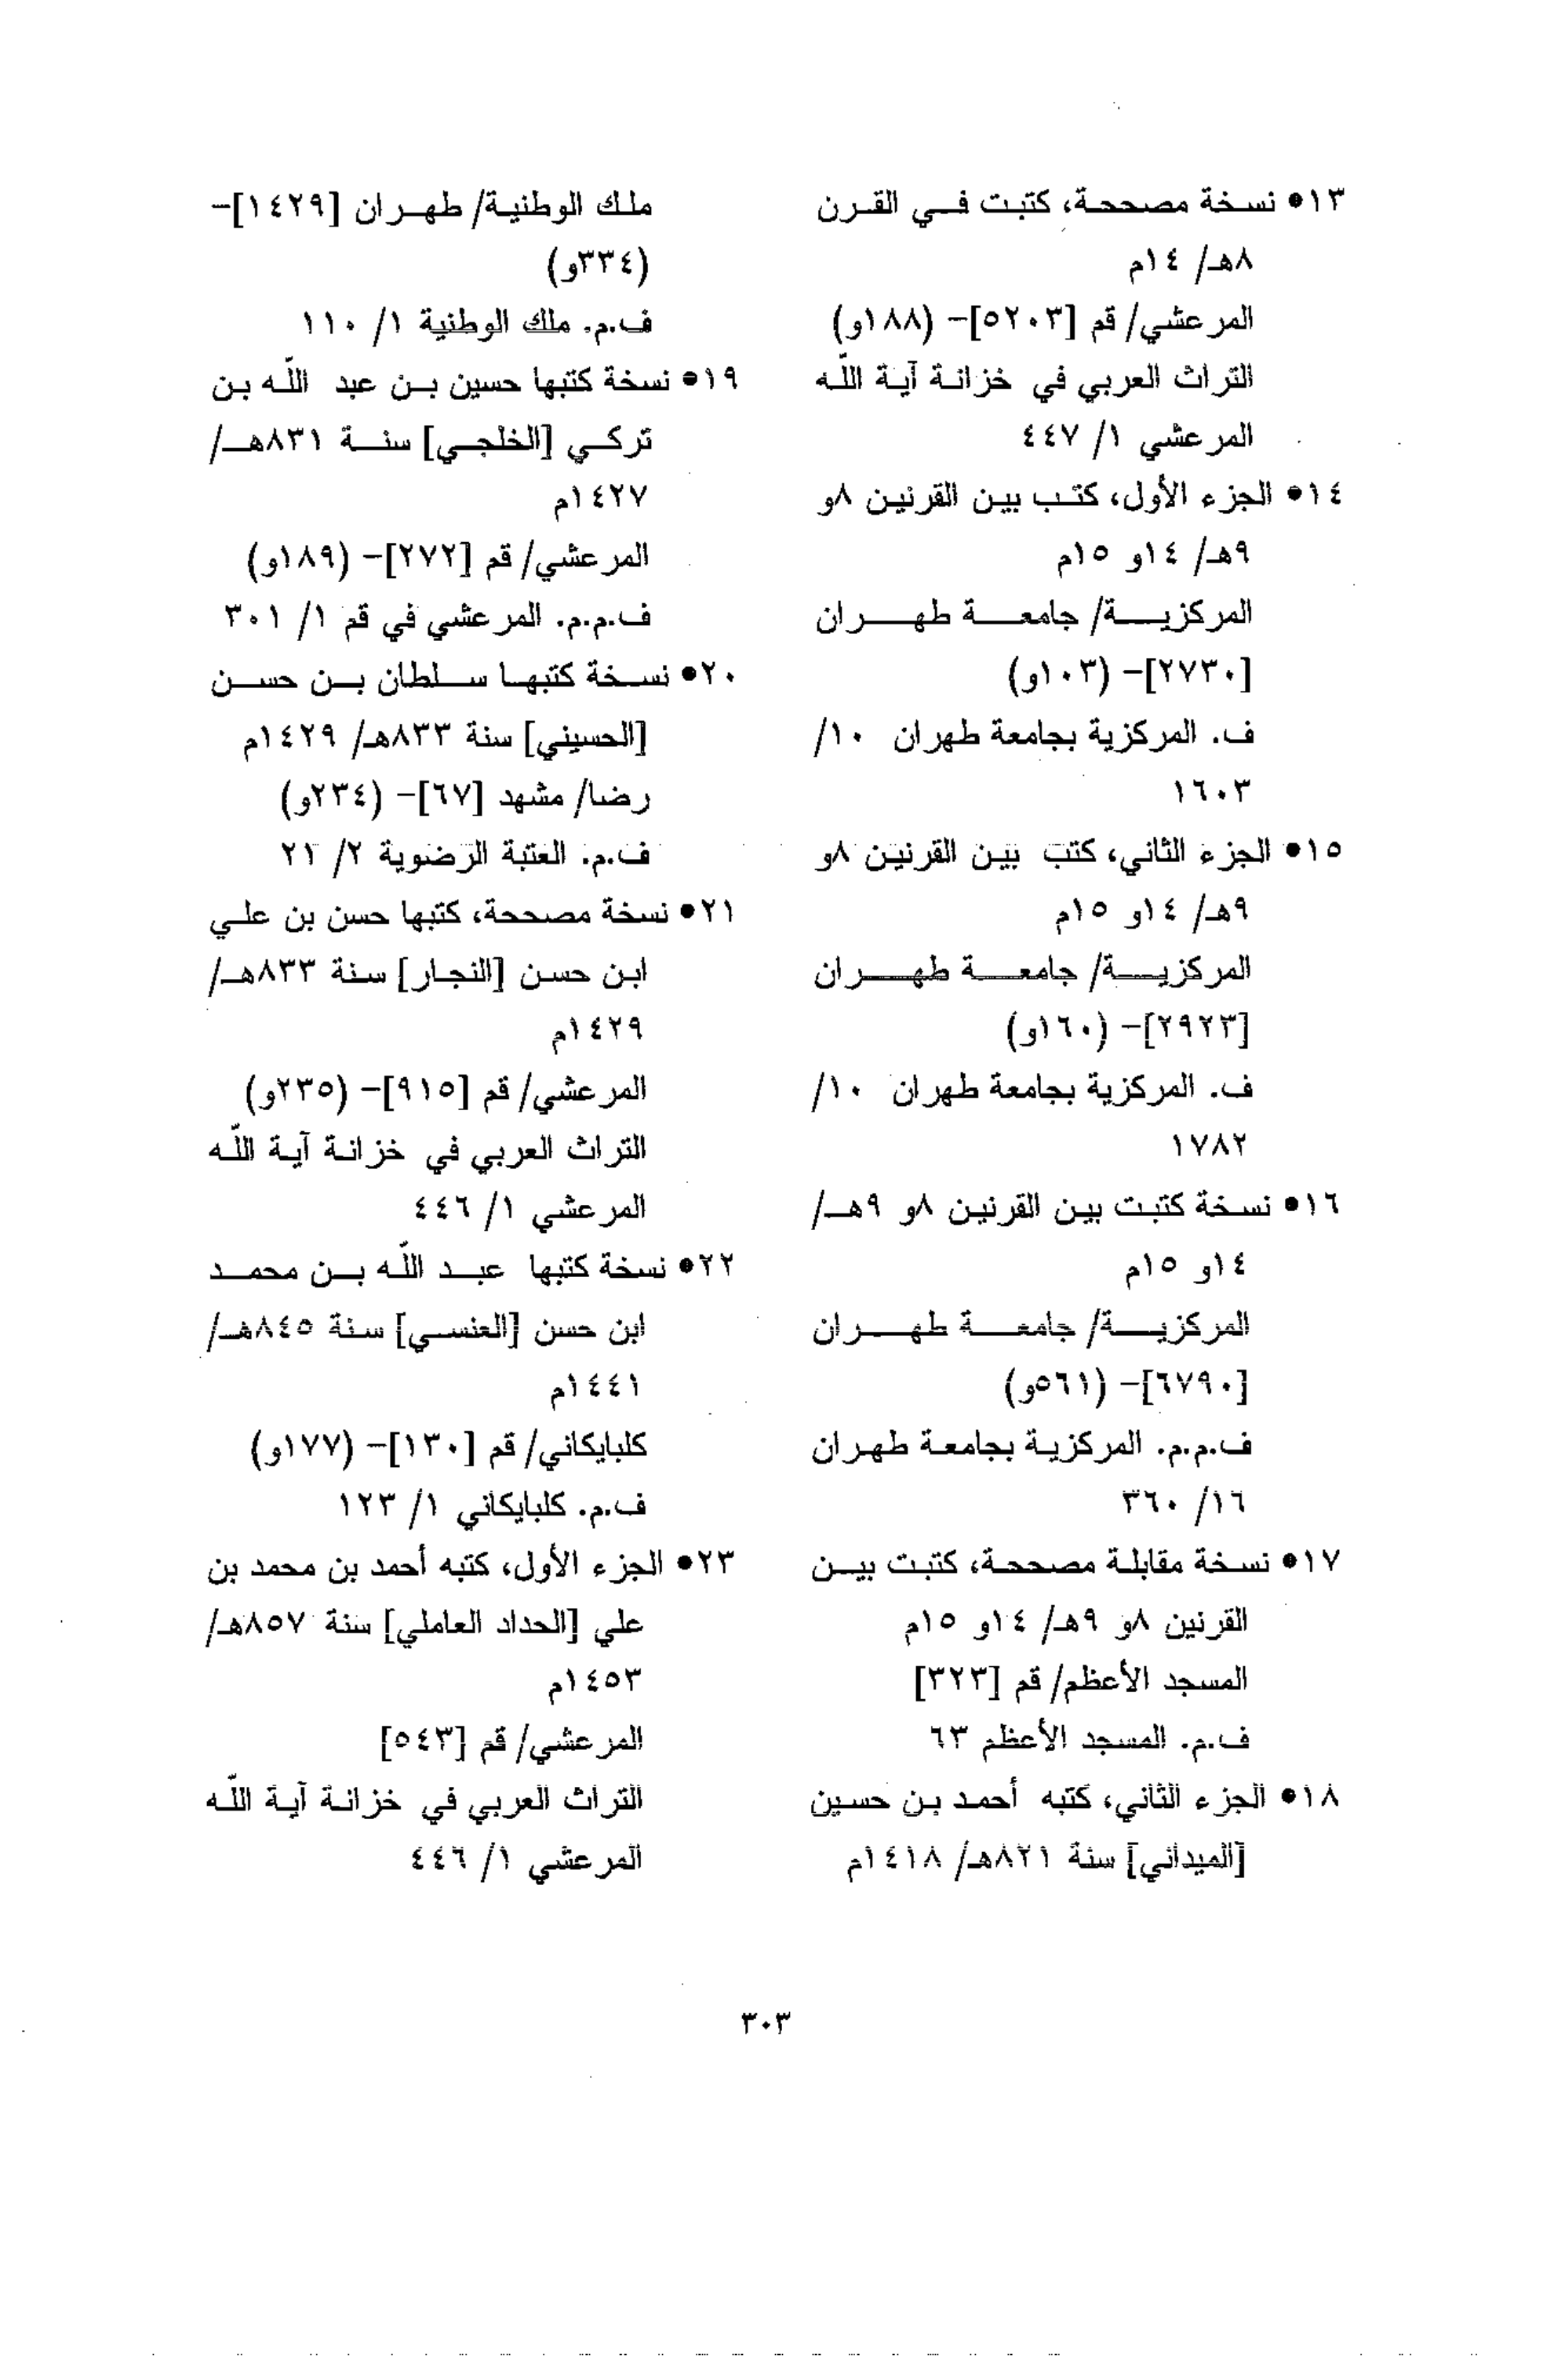 ١٣● نسخة مصححة، كتبت في القرن
٨هـ/ ١٤م
المرعشي/ قم [٥٢٠٣]- (١٨٨و)
التراث العربي في خزانة آية اللّه
المرعشي ١/ ٤٤٧
١٤● الجزء الأول، كتب بين القرنين ٨و
٩هـ/ ١٤و ١٥م
المركزية/ جامعة طهران
[٢٧٣٠]- (١٠٣و)
ف. المركزية بجامعة طهران ١٠/
١٦٠٣
١٥● الجزء الثاني، كتب بين القرنين ٨و
٩هـ/ ١٤و ١٥م
المركزية/ جامعة طهران
[٢٩٢٣]- (١٦٠و)
ف. المركزية بجامعة طهران ١٠/
١٧٨٢
١٦● نسخة كتبت بين القرنين ٨و ٩هـ/
١٤و ١٥م
المركزية/ جامعة طهران
[٦٧٩٠]- (٥٦١و)
ف.م.م. المركزية بجامعة طهران
١٦/ ٣٦٠
١٧● نسخة مقابلة مصححة، كتبت بين
القرنين ٨و ٩هـ/ ١٤و ١٥م
المسجد الأعظم/ قم [٣٢٣]
ف.م. المسجد الأعظم ٦٣
١٨● الجزء الثاني، كتبه أحمد بن حسين
[الميداني] سنة ٨٢١هـ/ ١٤١٨م
ملك الوطنية/ طهران [١٤٢٩]-
(٣٣٤و)
ف.م. ملك الوطنية ١/ ١١٠
١٩● نسخة كتبها حسين بن عبد اللّه بن
تركي [الخلجي] سنة ٨٣١هـ/
١٤٢٧م
المرعشي/ قم [٢٧٢]- (١٨٩و)
ف.م.م. المرعشي في قم ١/ ٣٠١
٢٠● نسخة كتبها سلطان بن حسن
[الحسيني] سنة ٨٣٣هـ/ ١٤٢٩م
رضا/ مشهد [٦٧]- (٢٣٤و)
ف.م. العتبة الرضوية ٢/ ٢١
٢١● نسخة مصححة، كتبها حسن بن علي
ابن حسن [النجار] سنة ٨٣٣هـ/
١٤٢٩م
المرعشي/ قم [٩١٥]- (٢٣٥و)
التراث العربي في خزانة آية اللّه
المرعشي ١/ ٤٤٦
٢٢● نسخة كتبها عبد اللّه بن محمد
ابن حسن [العنسي] سنة ٨٤٥هـ/
١٤٤١م
كلبايكاني/ قم [١٣٠]- (١٧٧و)
ف.م. كلبايكاني ١/ ١٢٣
٢٣● الجزء الأول، كتبه أحمد بن محمد بن
علي [الحداد العاملي] سنة ٨٥٧هـ/
١٤٥٣م
المرعشي/ قم [٥٤٣]
التراث العربي في خزانة آية اللّه
المرعشي ١/ ٤٤٦
٣٠٣